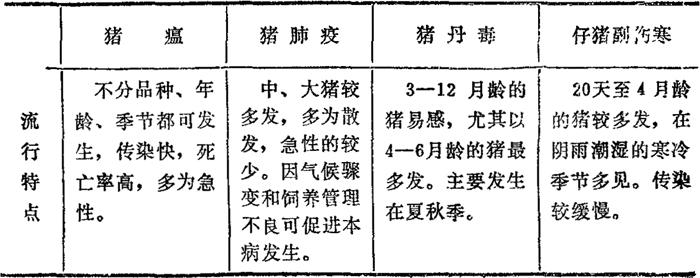 猪瘟
猪肺疫
猪丹毒
仔猪副伤寒
流行特点
不分品种、年
龄、季节都可发
生，传染快，死
亡率高，多为急
性。
中、大猪较
多发，多为散
发，急性的较
少。因气候骤
变和饲养管理
不良可促进本
病发生。
3—12月龄的
猪易感，尤其以
4—6月龄的猪最
多发。主要发生
在夏秋季。
20天至4月龄
的猪较多发，在
阴雨潮湿的寒冷
季节多见。传染
较缓慢。